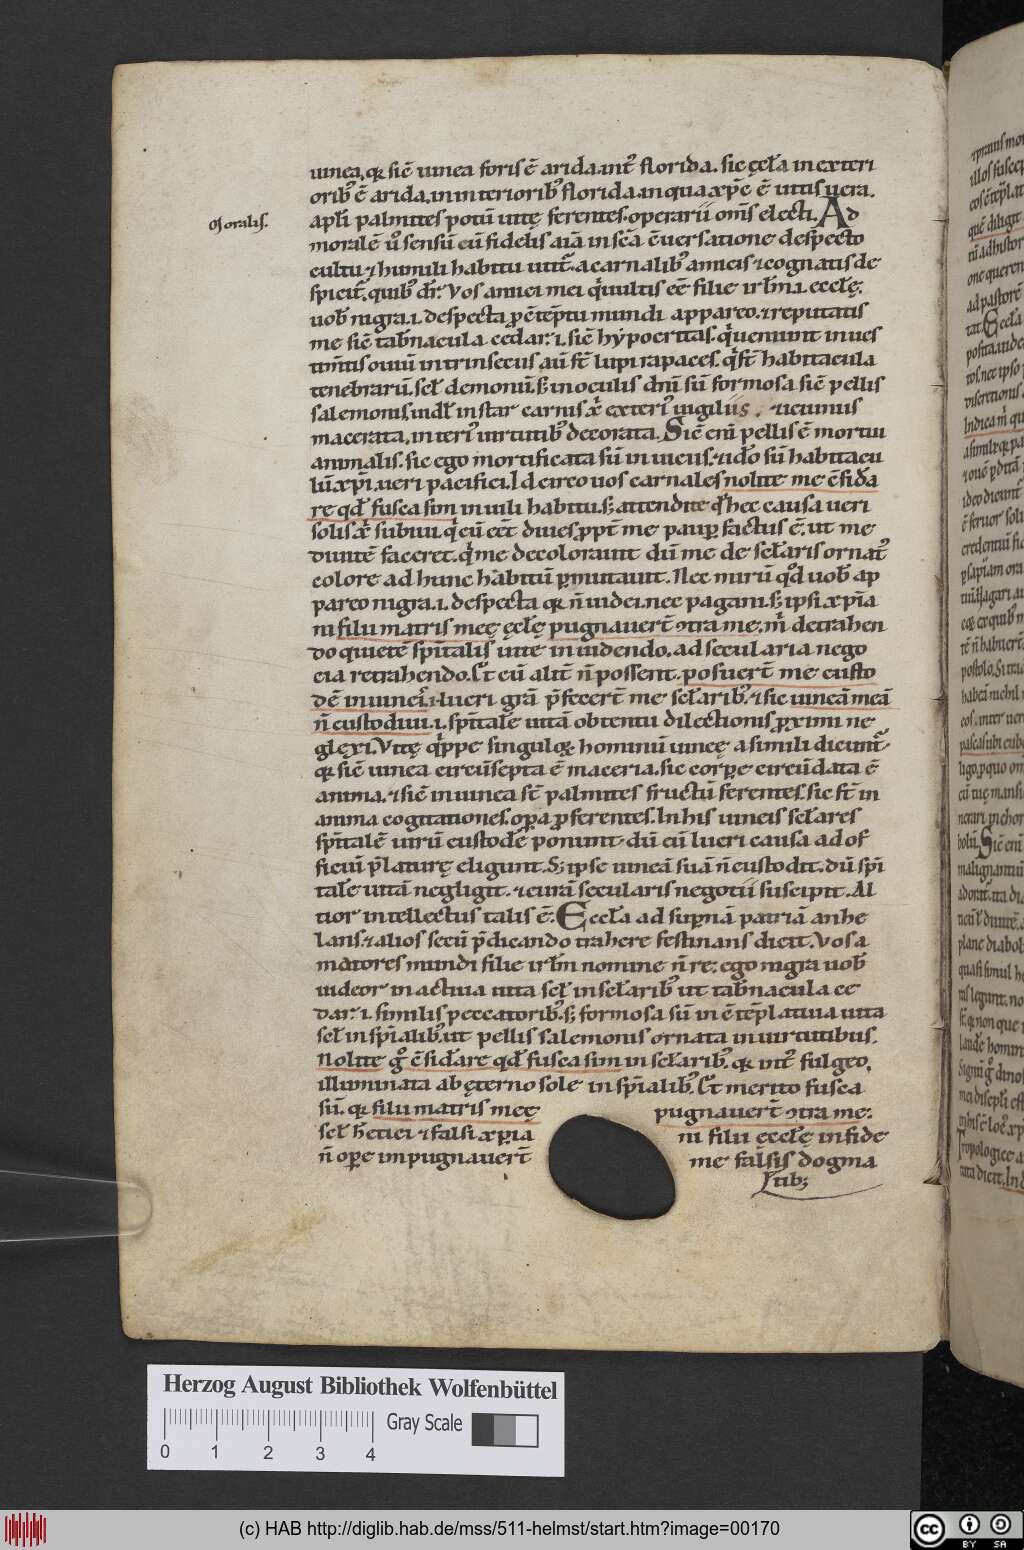 uinea. q̄ sic̄ uinea foris ē arida. int᷒ florida. sic ęccl̄a in exteri
orib᷒ ē arida. in interiorib᷒ florida. in qua xp̄c ē uitis uera.
apl̄i palmites potū uitę ferentes. operarii om̄s electi. Ad
Moralis.
moralē u᷒o sensū cū fidelis aīa in sc̄a c̄uersatione despecto
cultu ⁊ humili habitu utit᷒. a carnalib᷒ amicis ⁊ cognatis de
spicit᷒. quib᷒ dr̄. Vos amici mei q̇ uultis ēē filie irl̄m. ī. eccl̄ę.
uob᷒ nigra .i. despecta p̄ c̄tēptu mundi appareo. ⁊ reputatis
me sic̄ tab̄nacula cedar .i. sic̄ hẏpocritas. q̇ ueniunt in ues
tim̄tis ouiū intrinsecus aū st̄ lupi rapaces. q̇ st̄ habitacula
tenebrarū. scl̄ demoniū. s; in oculis dn̄i sū formosa sic̄ pellis
salemonis. uidl̄ in star carnis xp̄i exteri᷒ uigiliis . ⁊ ieiuniis
macerata. in teri᷒ uirtutib᷒ decorata. Sic̄ eni̅ pellis ē mortui
animalis. sic ego mortificata sū in uiciis. ⁊ idō sū habitacu
lū xp̄i. ueri pacifici. Id circo uos carnales nolite me c̄sida
re qd̄ fusca sim in uili habitu. s; attendite q᷒d hec causa ueri
solis xp̄i subiui. q̇ cū eēt diues ppt̄ me paup̄ factus ē. ut me
diuitē faceret. q̇ me decolorauit dū me de sęl̄aris ornat᷒
colore ad hunc habitū p̄mutauit. Nec mirū qd̄ uob᷒ ap
pareo nigra .i. despecta q̄ n̄ iudei. nec pagani. s; ipsi xp̄ia
ni filii matris meę ęccl̄ę pugnauer̄t ɔtra me. m̄ detrahen
do quietē spīitalis uite inuidendo. ad secularia nego
cia retrahendo. Et cū alit᷒ n̄ possent. posuer̄t me custo
dē in uineis. i. lucri gr̄a p̄fecer̄t me scl̄arib᷒. ⁊ sic uineā meā
n̄ custodiui .i. spīitale uitā obtentu dilectionis p̄ximi ne
glexi. Vitę q̇ppe singuloꝝ hominū uineę asimili dicunt᷒.
q̄ sic̄ uinea circūsepta ē maceria. sic corpore circūdata ē
anima. ⁊ sic̄ in uinea st̄ palmites fructū ferentes. sic st̄ in
anima cogitationes. opa p̄ferentes. In his uineis scl̄ares
spīitalē uirū custodē ponunt dū cū lucri causa ad of
ficiū p̄laturę eligunt. S; ipse uineā suā n̄ custodit. dū sp̄i
talē uitā negligit. ⁊ curā secularis negotii suscipit. Al
tior intellectus talis ē. Eccl̄a ad sup̄nā patriā anhe
lans. ⁊ alios secū p̄dicando trahere festinans dicit. Vos a
matores mundi filie irl̄m nomine n̄ re. ego nigra uob᷒
uideor in actiua uita scl̄ in scl̄arib᷒ ut tab̄nacula ce
dar .i. similis peccatorib᷒. s; formosa sū in c̄tēplatiua uita
scl̄ in sp̄ialib᷒. ut pellis salemonis ornata in uirtutibus.
Nolite g᷒ c̄sid̄are qd̄ fusca sim in scl̄arib᷒. q̄ int᷒ fulgeo.
illuminata ab ęterno sole in sp̄ialib᷒. Et merito fusca
sū. q̄ filii matris meę pugnauer̄t ɔtra me.
scl̄ h̄etici ⁊ falsi xp̄ia ni filii eccl̄ę in fide
n̄ opere impugnauer̄t me falsis dogma
tib;
Herzog August Bibliothek Wolfenbüttel
Gray Scale
0 1 2 3 4
(c) HAB http://diglib.hab.de/mss/511-helmst/start.htm?image=00170
cc BY SA